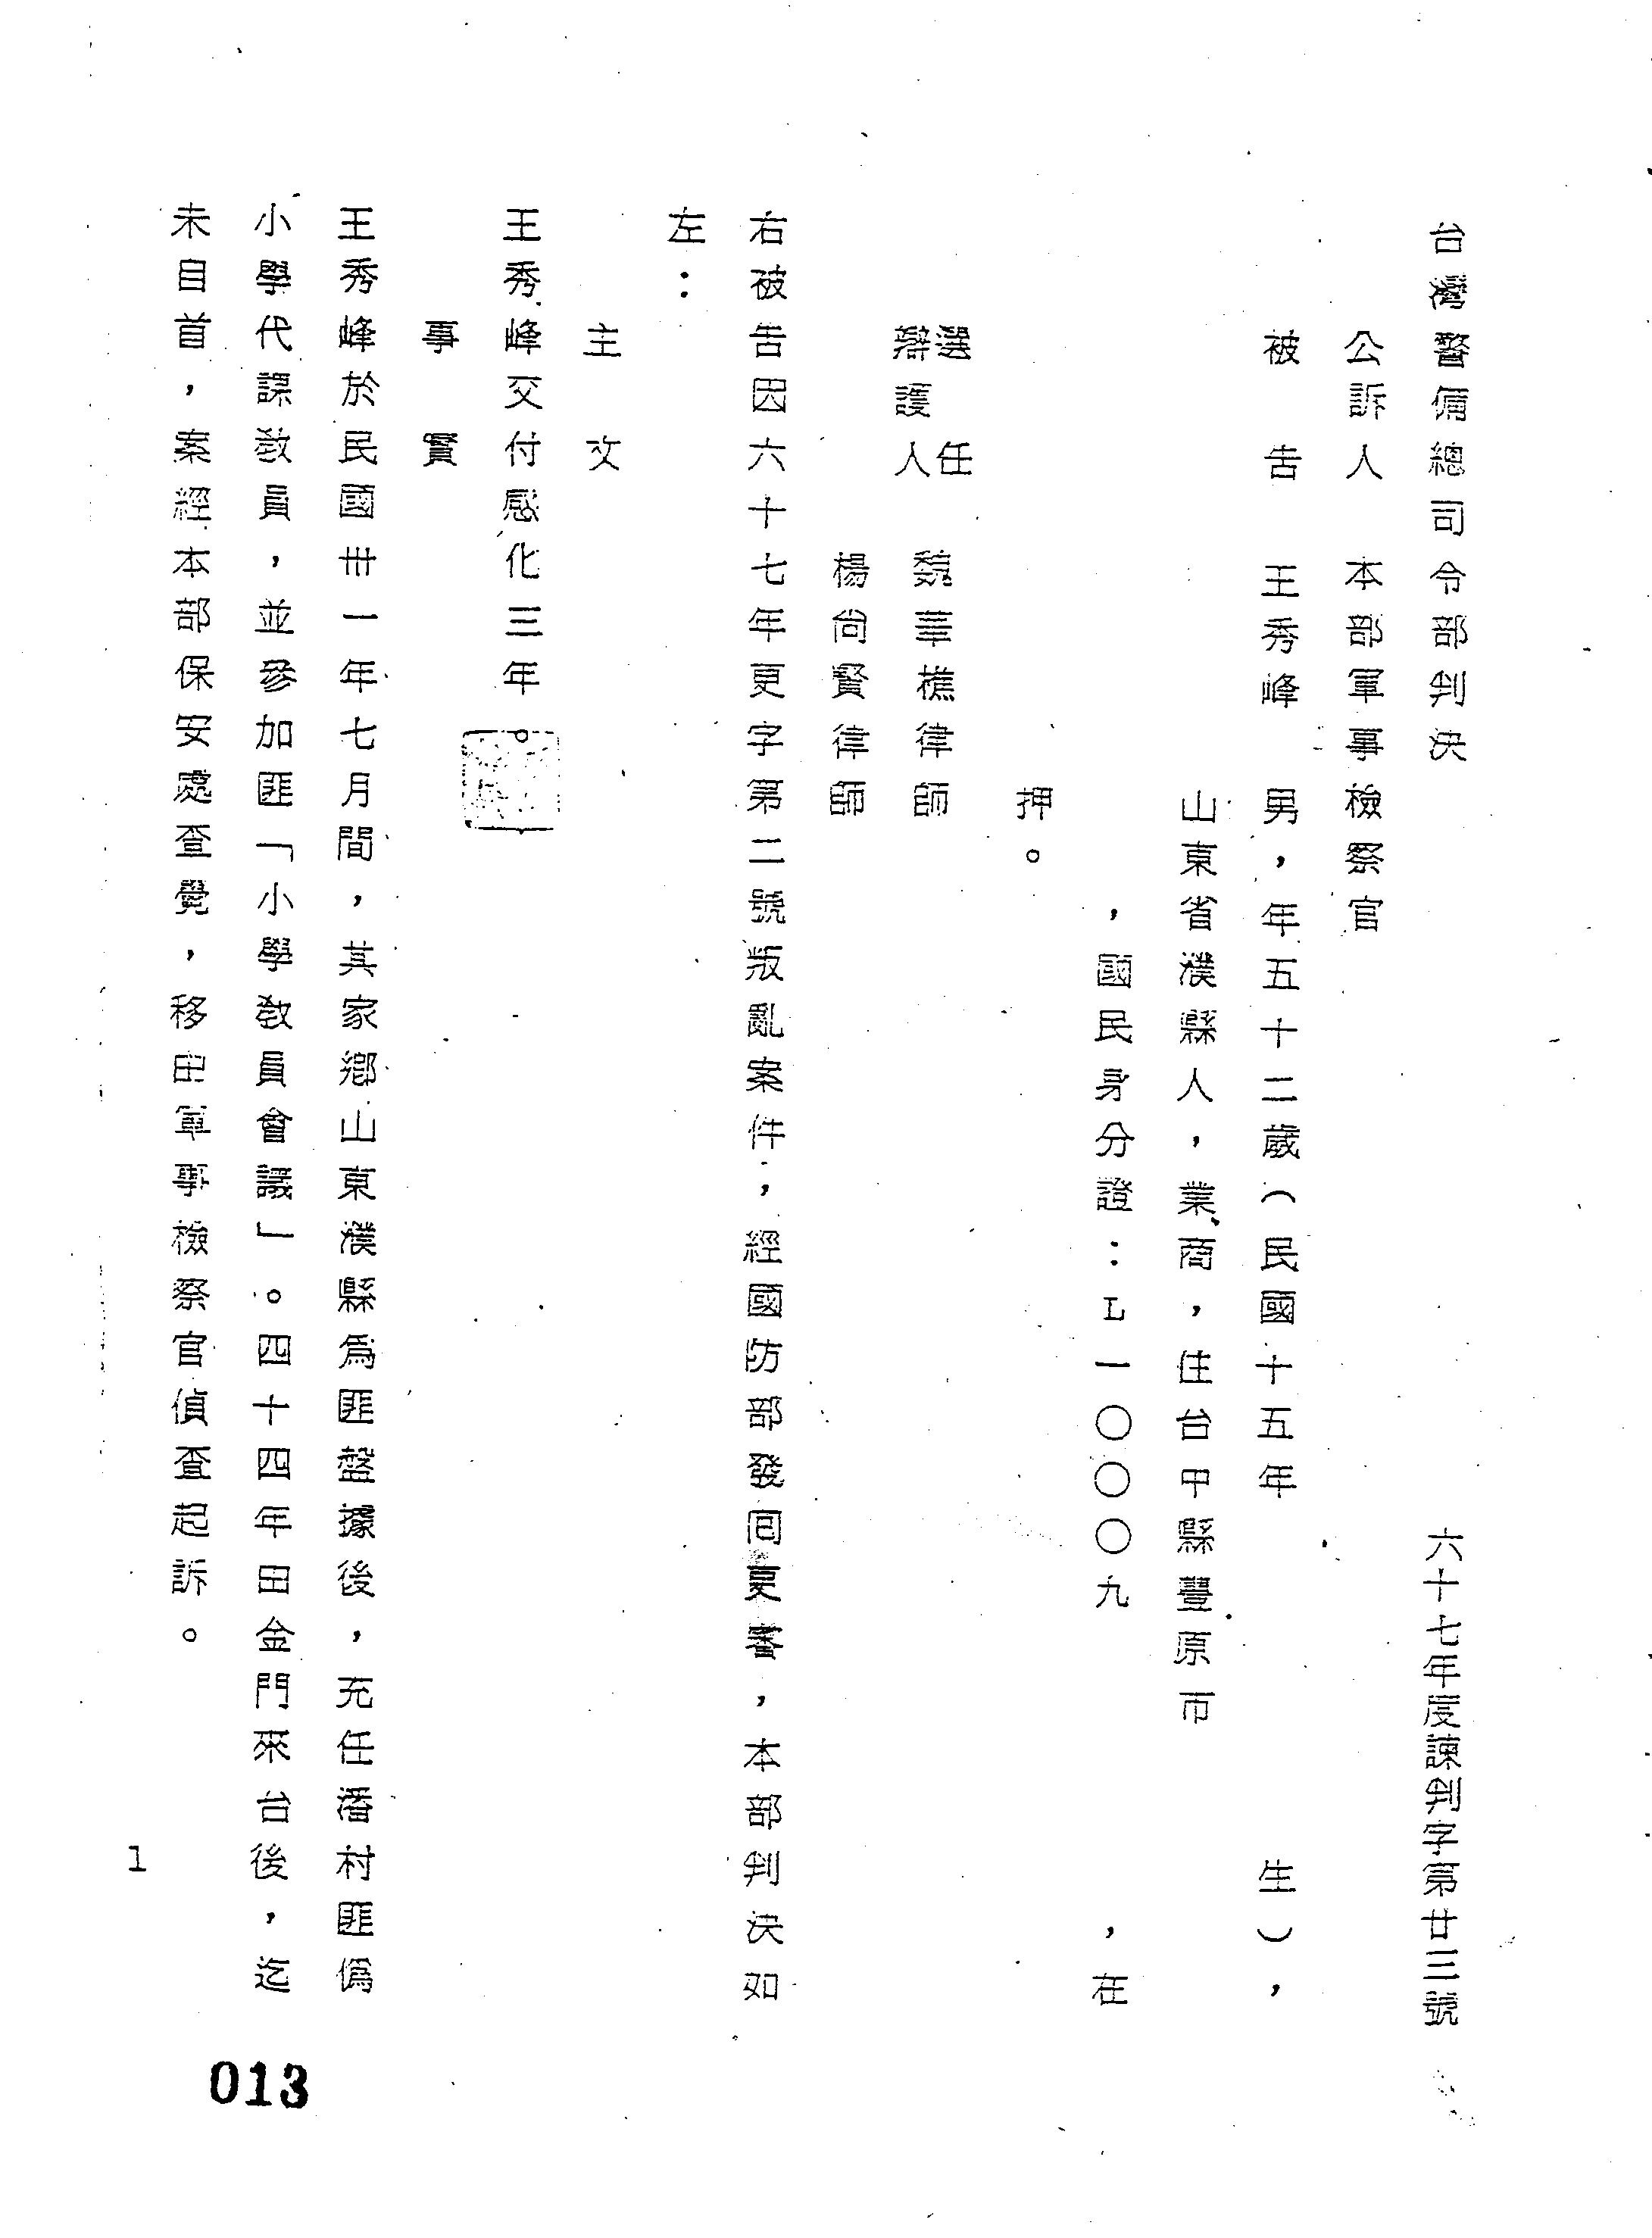 台灣警備總司令部判決 六十七年度諫判字第廿三號
公訴人 本部軍事檢察官
被告 王秀峰 男，年五十二歲（民國十五年 生），
山東省濮縣人，業商，住台中縣豐原市
，國民身分證：L一〇〇〇九 ，在
押。
選任
辯護人 魏華樵律師
楊尙賢律師
右被告因六十七年更字第二號叛亂案件，經國防部發回更審，本部判決如
左：
主文
王秀峰交付感化三年。
事實
王秀峰於民國卅一年七月間，其家鄉山東濮縣爲匪盤據後，充任潘村匪僞
小學代課教員，並參加匪「小學教員會議」。四十四年由金門來台後，迄
未自首，案經本部保安處查覺，移由軍事檢察官偵查起訴。
1
013